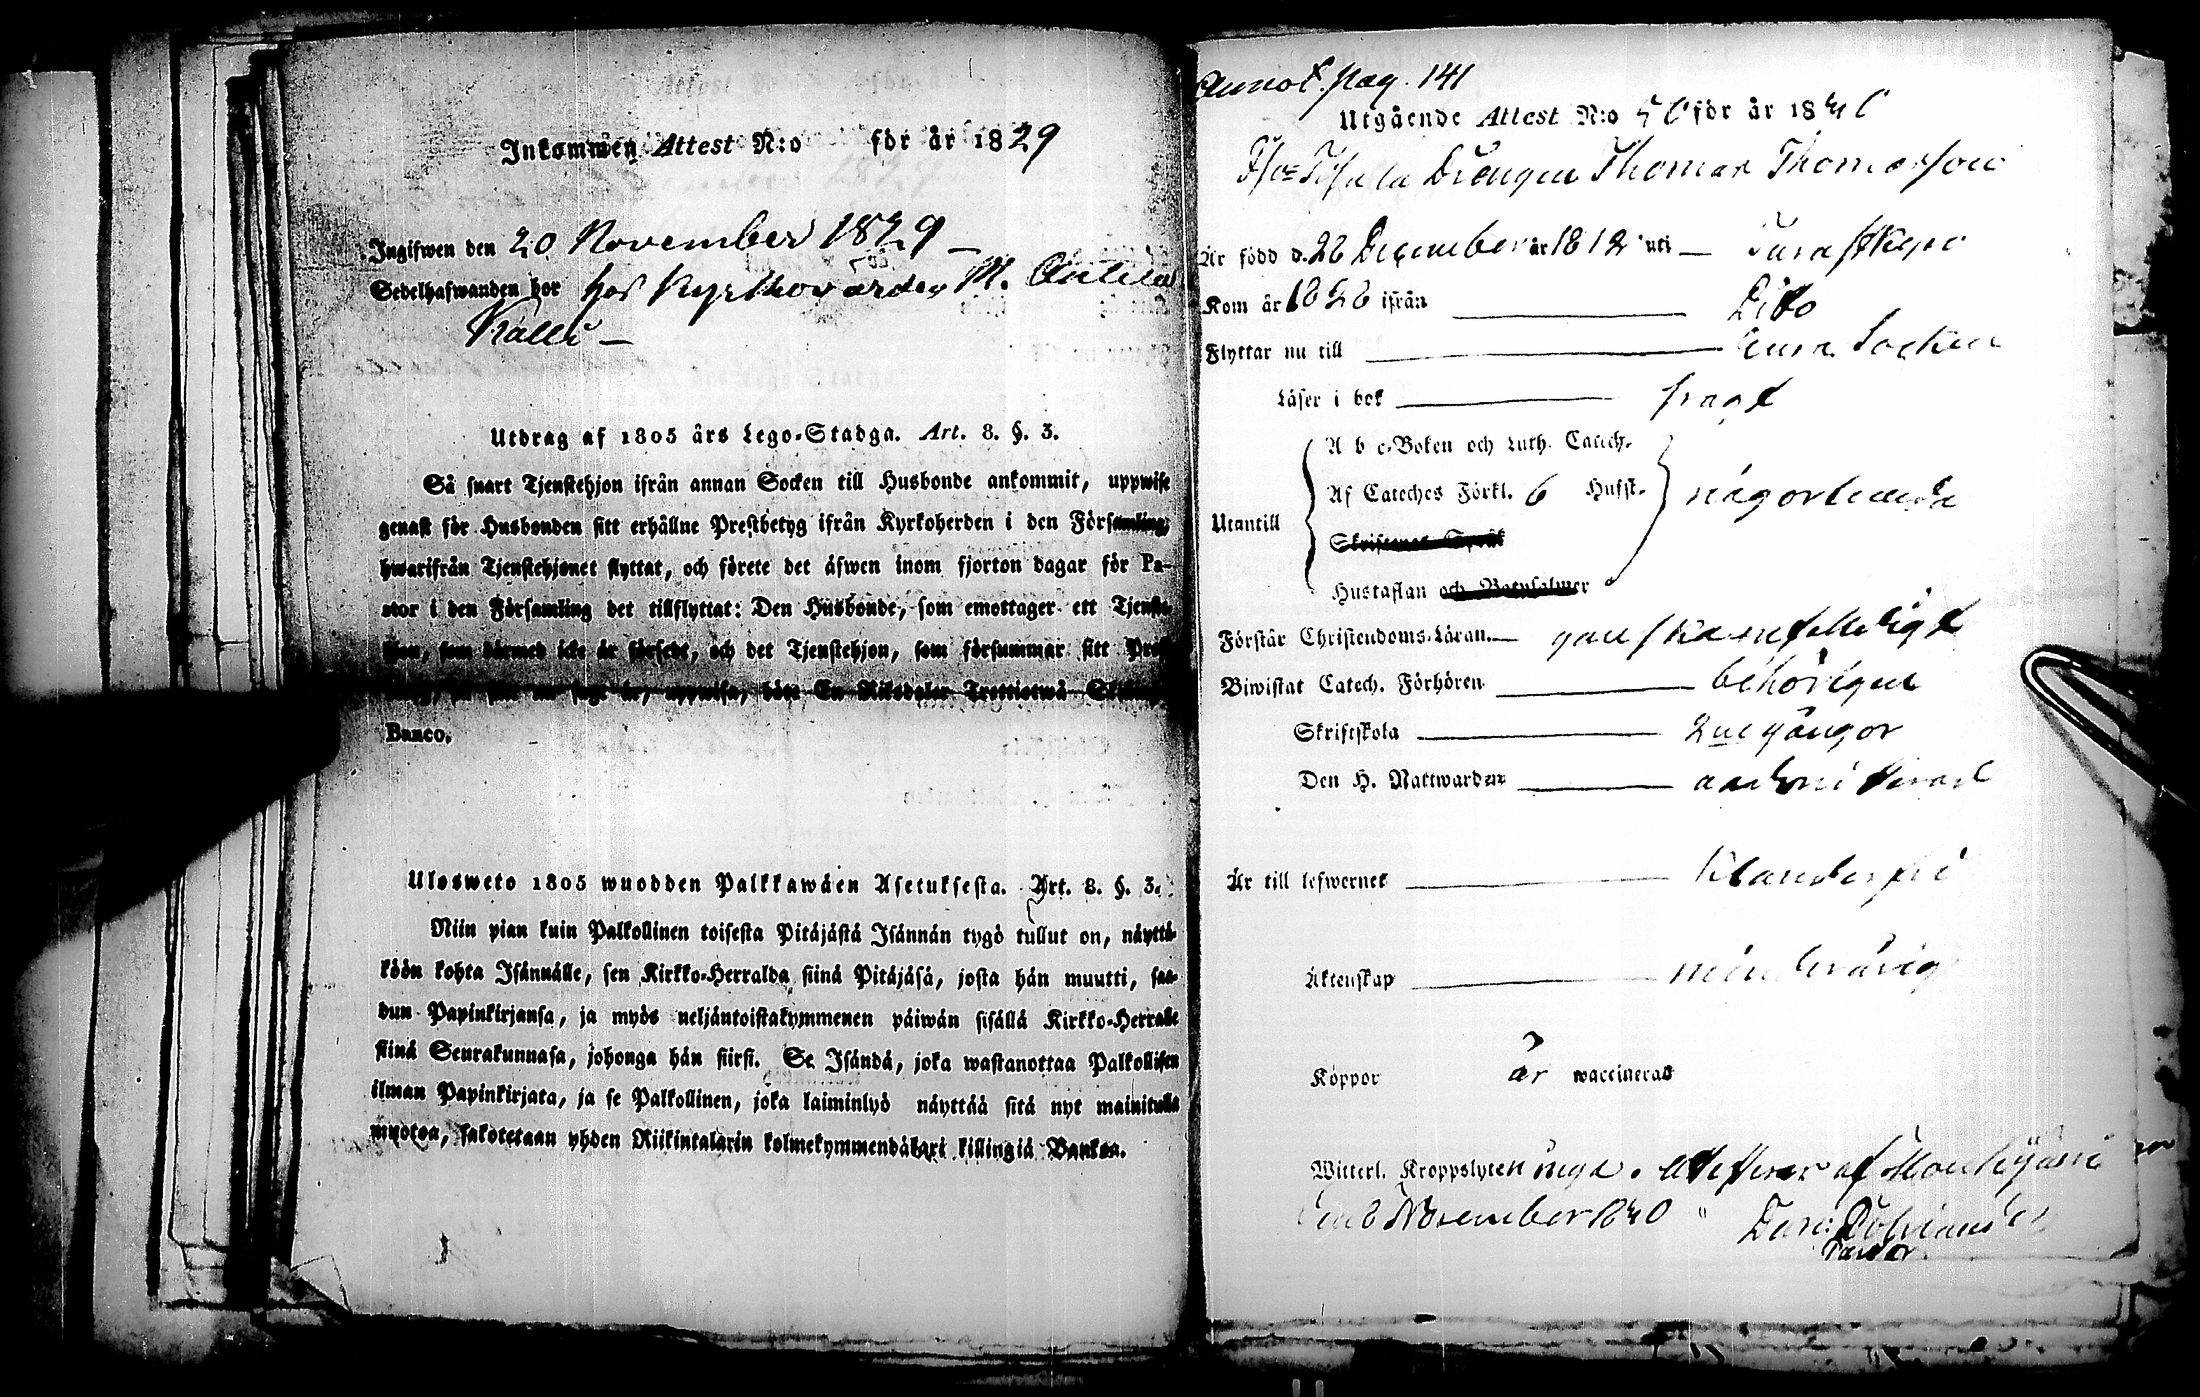 Inkommen Attest N:o för år 1829
Ingifwen den 20 November 1829
Sedelhafwanden bor hos M.
Utdrag af 1805 års Lego-Stadga. Art. 8. §. 3.
Så snart Tjenstehjon ifrån annan Socken till Husbonde ankommit, uppwise
genast för Husbonden sitt erhållne Prestbetyg ifrån Kyrkoherden i den Församling,
hwarifrån Tjenstehjonet flyttat, och förete det äfwen inom fjorton dagar för Pa-
stor i den Församling det tillflyttat: Den Husbonde, som emottager ett Tjenste-
hjon, som därmed icke är försedt, och det Tjenstehjon, som försummar sitt
uppwisa, böte En Riksdaler Trettiotwå
Banco.
Ulosweto 1805 wuodden Palkkawäen Asetuksesta. Art. 8. §. 3.
Niin pian kuin Palkollinen toisesta Pitäjästä Isännän tygö tullut on, näyttä-
köön kohta Isännälle, sen Kirkko-Herralda siinä Pitäjäsä, josta hän muutti, saa-
dun Papinkirjansa, ja myös neljäntoistakymmenen päiwän sisällä Kirkko-Herralle
siinä Seurakunnasa, johonga hän siirsi. Se Isändä, joka wastanottaa Palkollisen
ilman Papinkirjata, ja se Palkollinen, joka laiminlyö näyttää sitä nyt mainitulla
muotoa, sakotetaan yhden Riikintalarin kolmekymmendäkaxi killingiä Bankoa.
Annot. pag. 141
Utgående Attest N:o för år 18
Drengen Thomas Thomasson
Är född d. December år 1812 uti
Kom år ifrån Dito
Flyttar nu till Eura Socken
Läser i bok svagt
A b c-Boken och Luth. Catech.
Af Cateches Förkl. 6 Husst.
Utantill
någorlunda
Hustaflan och Botpsalmer
Förstår Christendoms-Läran ganska enfaldigt
Biwistat Catech. Förhören behörigen
Skriftskola 2ne gånger
Den H. Nattwarden admitterad
Är till lefwernet klanderfri
Äktenskap minderårig
Koppor är waccinerad
Witterl. Kroppslyten inga. Attesterar af
den 8 November 1840
Pastor